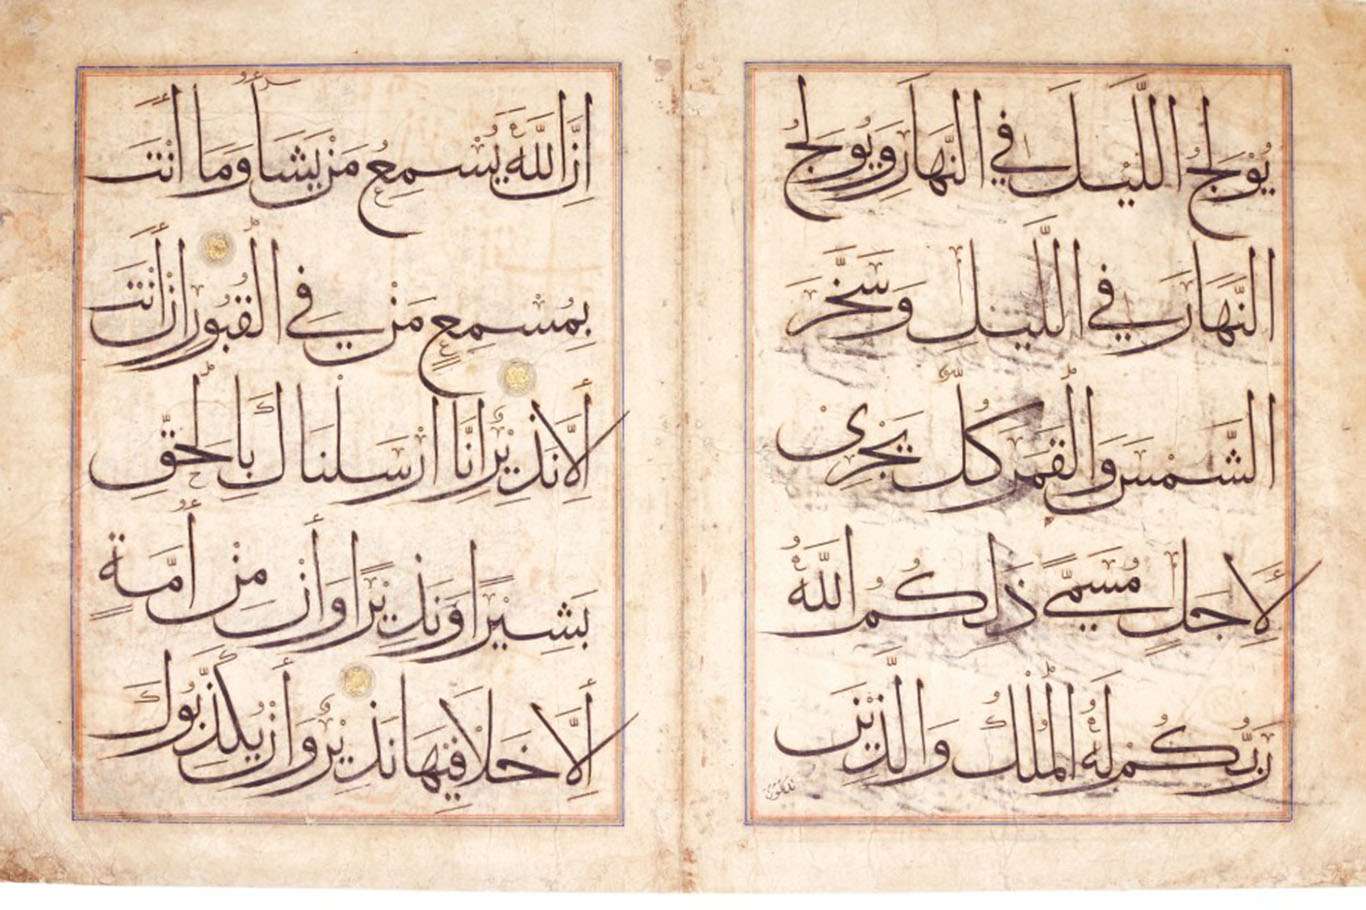 يُوْلِجُ اللَّيْلَ فِي النَّهَارِ وَيُوْلِجُ
النَّهَارَ فِي اللَّيْلِ وَسَخَّرَ
الشَّمْسَ وَالْقَمَرَ كُلٌّ يَجْرِى
لِاَجَلٍ مُسَمًّى ذٰلِكُمُ اللّٰهُ
رَبُّكُمْ لَهُ الْمُلْكُ وَالَّذِيْنَ
اِنَّ اللّٰهَ يُسْمِعُ مَنْ يَشَآءُ وَمَا أَنْتَ
بِمُسْمِعٍ مَنْ فِي الْقُبُوْرِ اِنْ أَنْتَ
اِلَّا نَذِيْرٌ اِنَّا اَرْسَلْنَاكَ بِالْحَقِّ
بَشِيْرًا وَنَذِيْرًا وَاِنْ مِنْ أُمَّةٍ
اِلَّا خَلَا فِيْهَا نَذِيْرٌ وَاِنْ يُكَذِّبُوْكَ